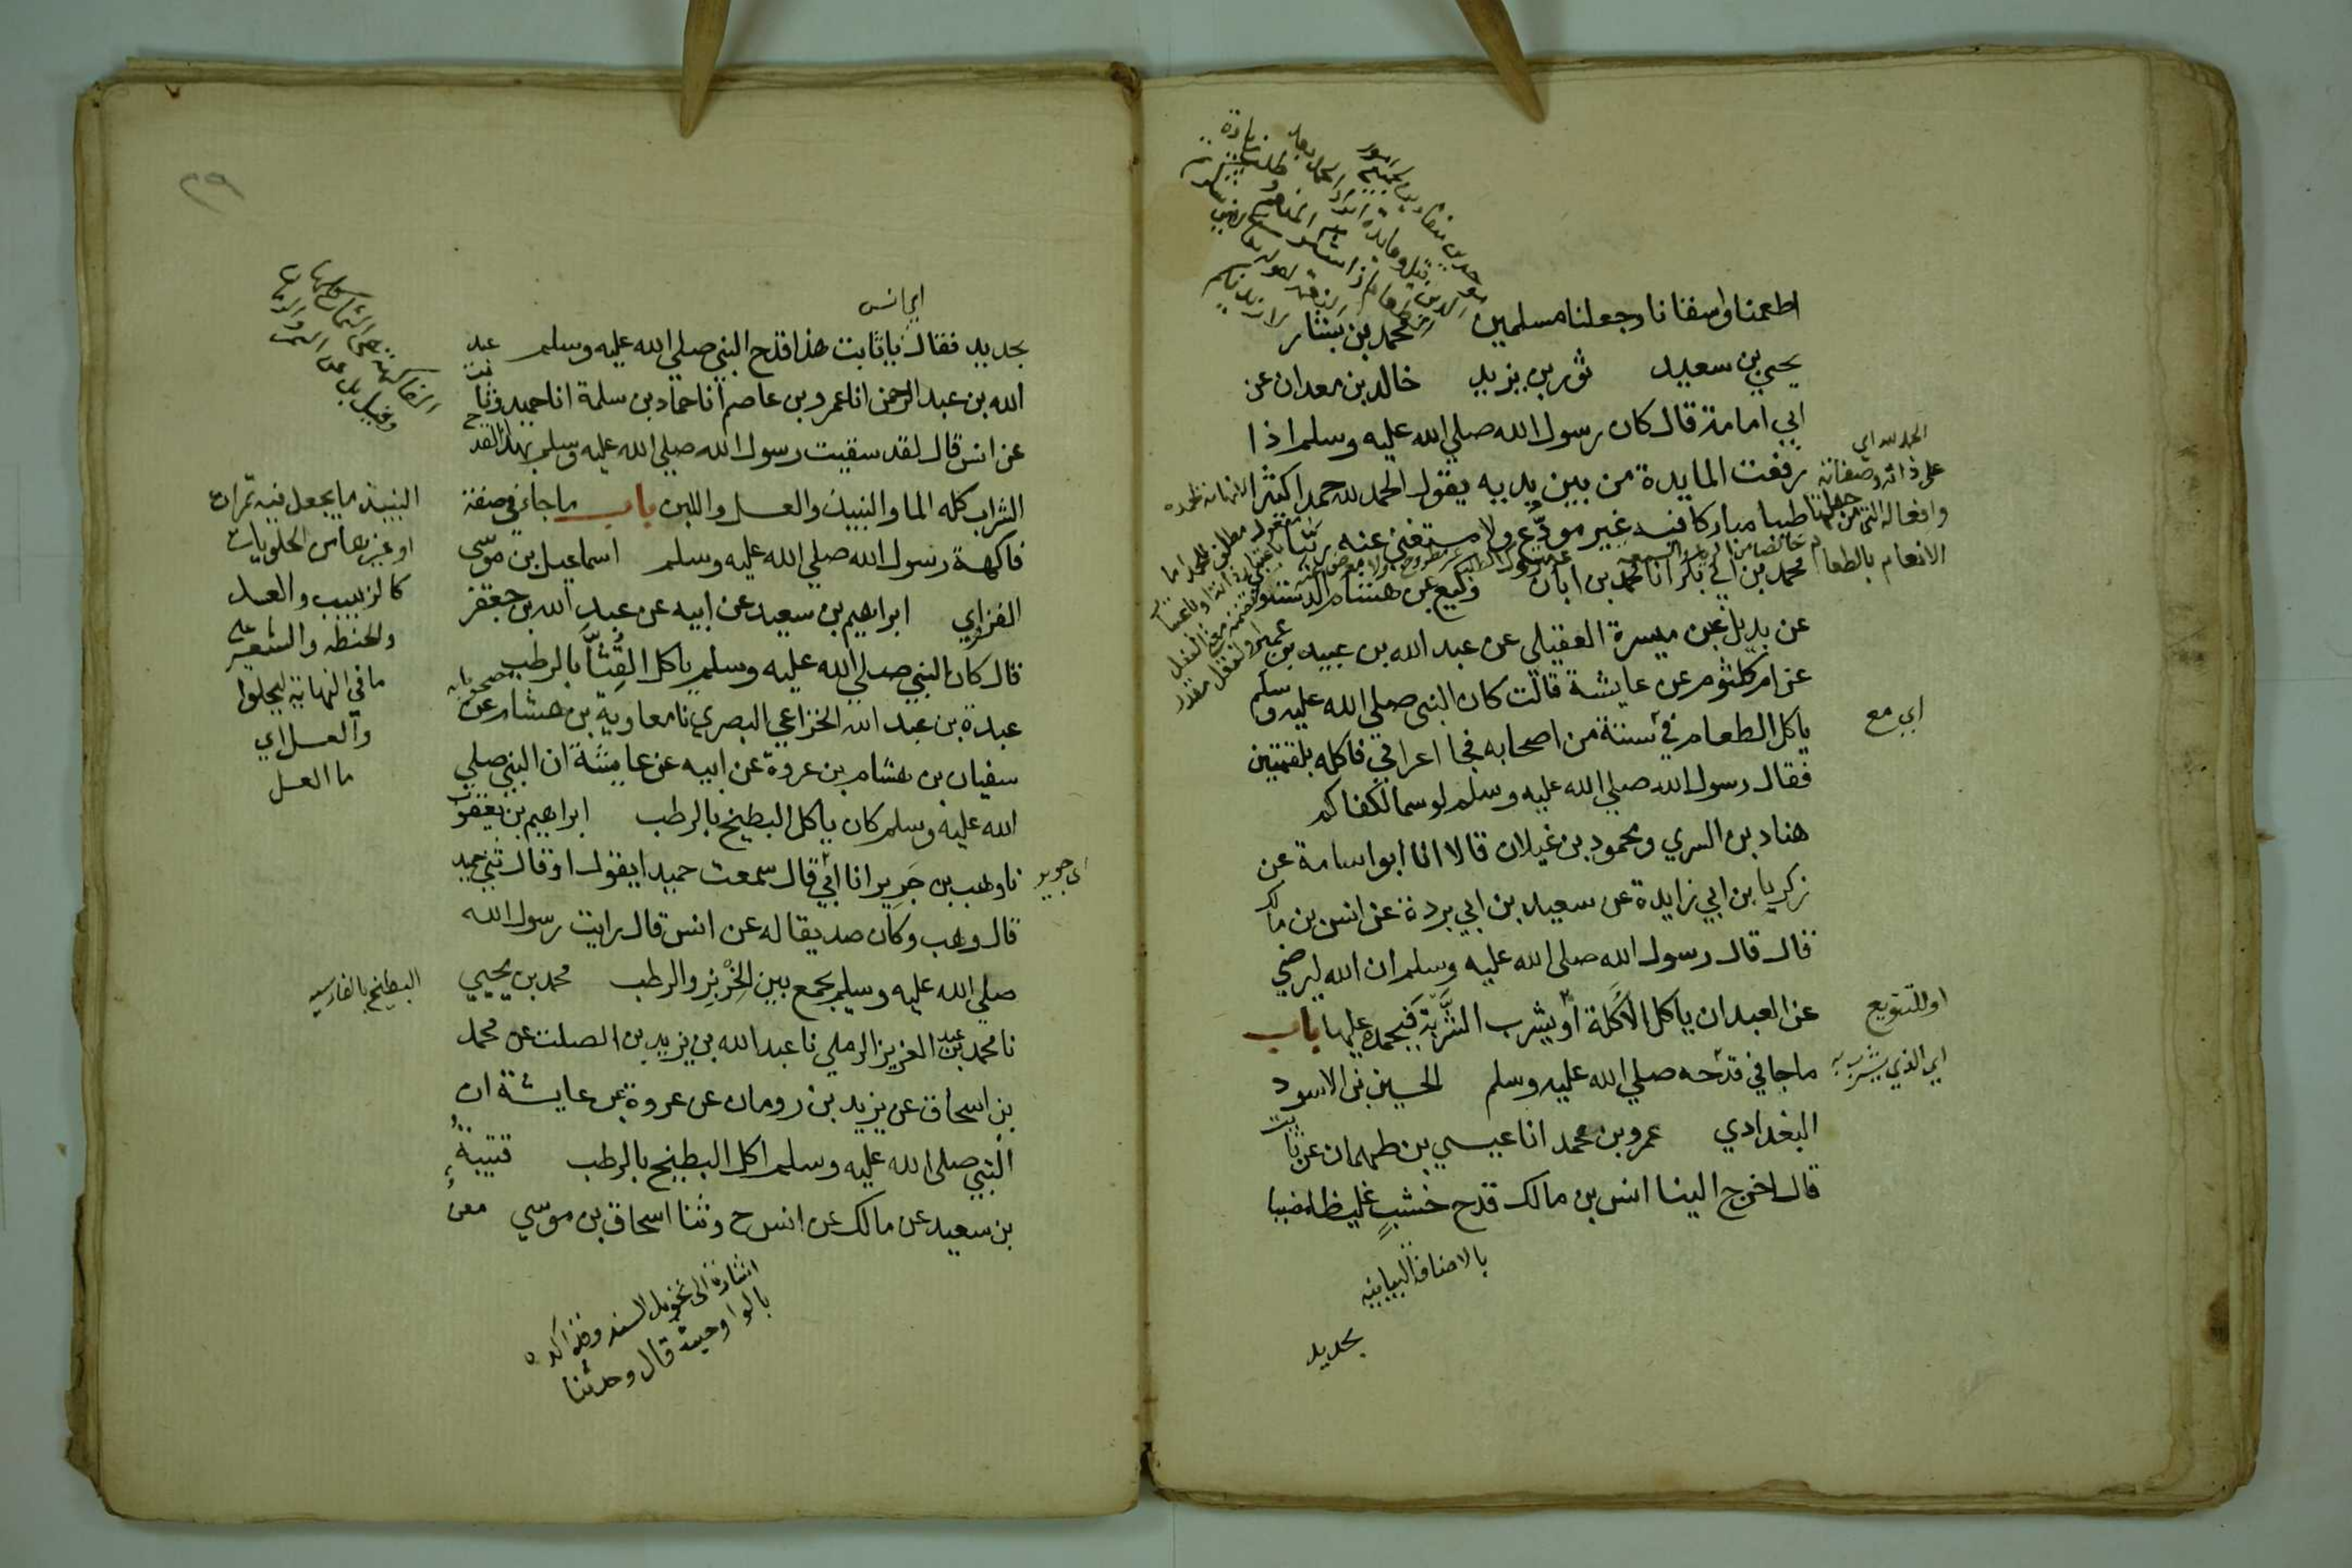 اطعمنا واسقانا وجعلنا مسلمين محمد بن بشار
يحيي بن سعيد ثور بن يزيد خالد بن معدان عن
ابي امامة قال كان رسول الله صلي الله عليه وسلم اذا
رفعت المايدة من بين يديه يقول الحمد لله حمدا كثيرا
طيبا مباركا فيه غير مودع ولا مستغني عنه ربنا
محمد بن ابي بكر انا محمد بن ابان وكيع عن هشام الدستواي
عن بديل عن ميسرة العقيلي عن عبد الله بن عبيد بن عمير
عن ام كلثوم عن عايشة قالت كان النبي صلي الله عليه وسلم
ياكل الطعام في ستة من اصحابه فجا اعرابي فاكله بلقمتين
فقال رسول الله صلي الله عليه وسلم لو سما لكفاكم
هناد بن السري ومحمود بن غيلان قالا انا ابو اسامة عن
زكريا بن ابي زايدة عن سعيد بن ابي بردة عن انس بن مالك
قال قال رسول الله صلي الله عليه وسلم ان الله ليرضي
عن العبد ان ياكل الاَكلة او يشرب الشَّربة فيحمده عليها باب
ما جا في قدحه صلي الله عليه وسلم الحسين بن الاسود
البغدادي عمرو بن محمد انا عيسي بن طهمان عن ثابت
قال اخرج الينا انس بن مالك قدح خشبٍ غليظا مضببا
الحمد لله اي
على ذاته وصفاته
وافعاله التي من جملتها
الانعام بالطعام
اي مع
او للتنويع
اي الذي يشرب به
بالاضافة البيانية
بحديد
٢٩
اي انس
بحديد فقال يا ثابت هذا قدح النبي صلي الله عليه وسلم عبد
الله بن عبد الرحمن انا عمرو بن عاصم انا حماد بن سلمة انا حميد وثابت
عن انس قال لقد سقيت رسول الله صلي الله عليه وسلم بهذا القدح
الشراب كله الما والنبيذ والعسل واللبن باب ما جاء في صفة
فاكهة رسول الله صلي الله عليه وسلم اسماعيل بن موسى
الفزاري ابراهيم بن سعيد عن ابيه عن عبد الله بن جعفر
قال كان النبي صلي الله عليه وسلم ياكل القِثّا بالرطب
عبدة بن عبد الله الخزاعي البصري نا معاوية بن هشام عن
سفيان بن هشام بن عروة عن ابيه عن عايشة ان النبي صلي
الله عليه وسلم كان ياكل البطيخ بالرطب ابراهيم بن يعقوب
نا وهب بن جَرِير انا ابي قال سمعت حميدا يقول او قال ثني حميد
قال وهب وكان صديقا له عن انس قال رايت رسول الله
صلي الله عليه وسلم يجمع بين الخِرْبِز والرطب محمد بن يحيي
نا محمد بن عبد العزيز الرملي نا عبد الله بن يزيد بن الصلت عن محمد
بن اسحاق عن يزيد بن رومان عن عروة عن عايشة ان
النبي صلي الله عليه وسلم اكل البطيخ بالرطب قتيبةُ
بن سعيد عن مالك عن انس ح وثنا اسحاق بن موسي معنٌ
النبيذ ما يجعل فيه تمرات
او غيرها من الحلويات
كالزبيب والعسل
والحنطه والشعير على
ما في النهاية ليحلوا
والعسل اي
ما العسل
اي جرير
البطيخ بالفارسيه
اشارة الى تحويل السند وقد اكده
بالواو حيث قال وحدثنا